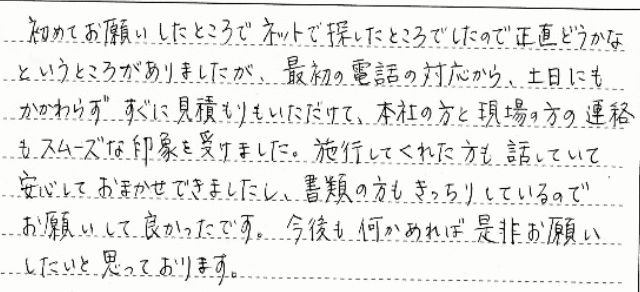 初めてお願いしたところでネットで探したところでしたので正直どうかな
というところがありましたが、最初の電話の対応から、土日にも
かかわらず すぐに見積もりもいただけて、本社の方と現場の方の連絡
もスムーズな印象を受けました。施行してくれた方も話していて
安心しておまかせできましたし、書類の方もきっちりしているので
お願いして良かったです。今後も何かあれば是非お願い
したいと思っております。